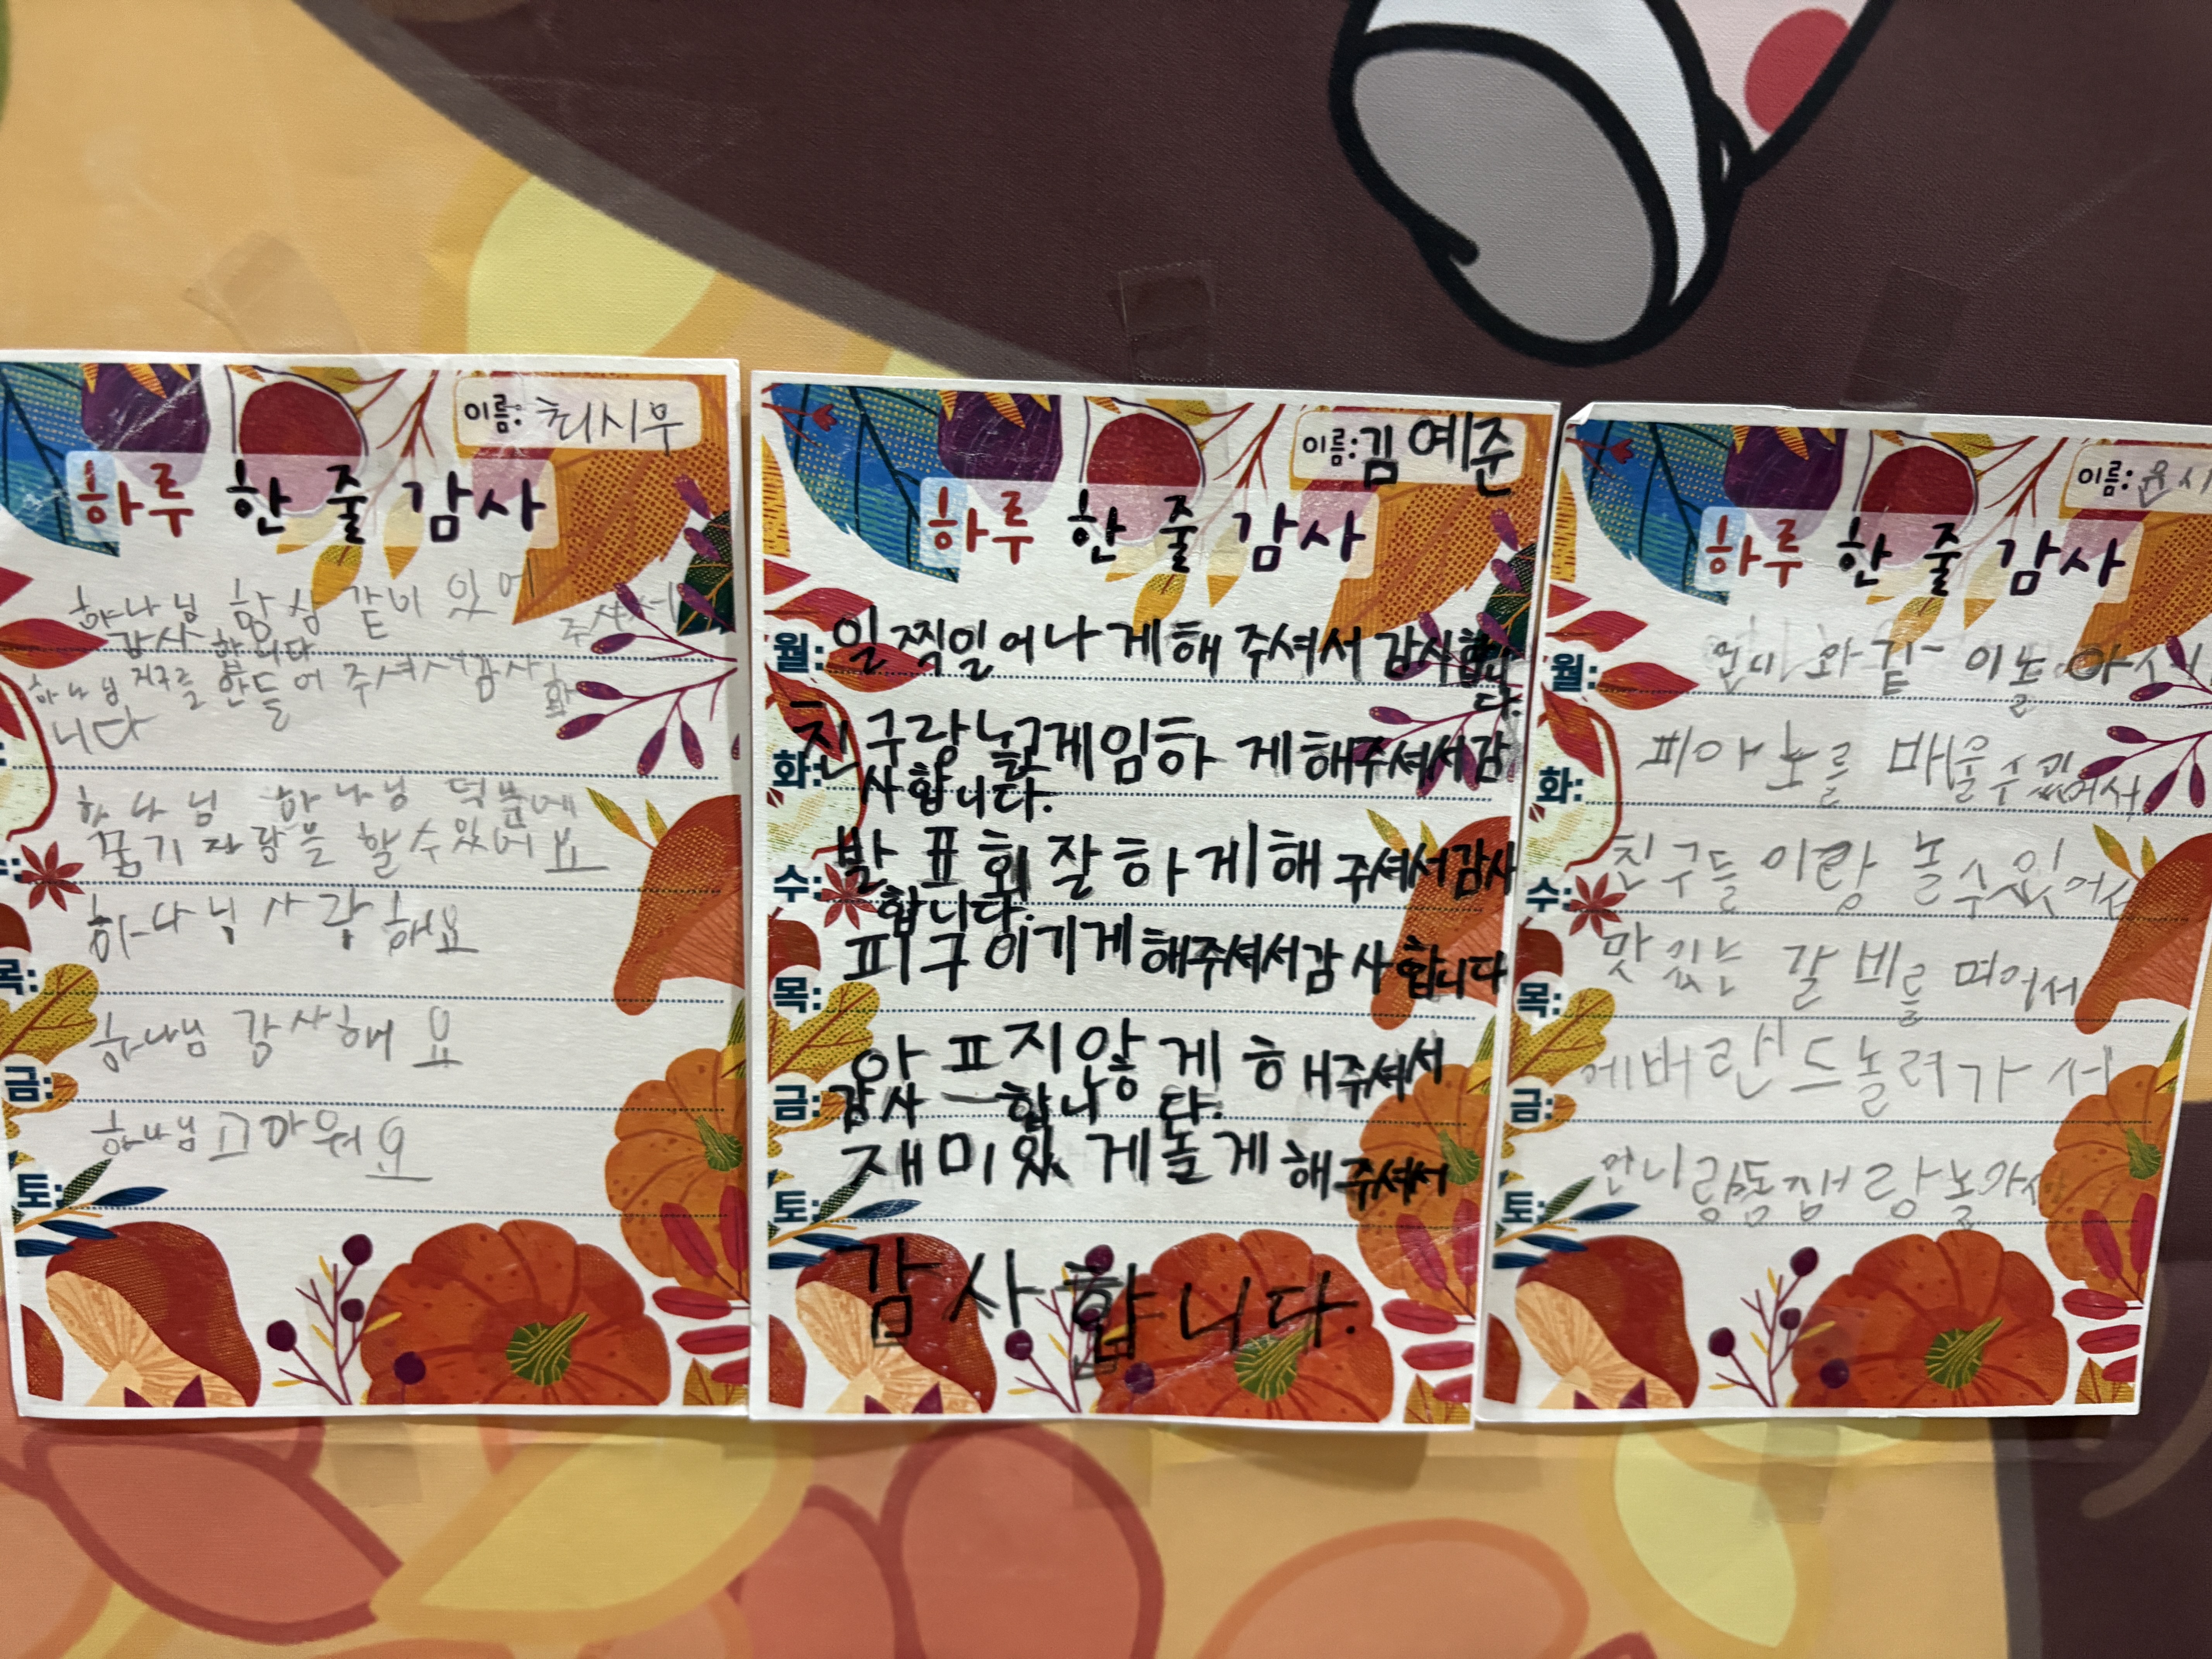 이름: 최시우
하루 한 줄 감사
하나님 항상 같이 있에
주셔서
감사 합니다
하나님 지구를 만들어 주셔서 감사합
니다
하나님 하나님 덕분에
꿈기자랑을 할수있어요
하나님 사랑해요
목:
하나님 감사해요
금:
하나님 고마워요
토:
이름: 김예준
하루 한 줄 감사
월: 일찍일어나게해 주셔서 감사합니
다.
화: 친구랑놀고게임하게해주셔서감
사합니다.
수: 발표회잘하게해주셔서감사
합니다.
목: 피구이기게해주셔서감사합니다
아프지않게해주셔서
금: 감사합니다.
토: 재미있게놀게해주셔서
감사합니다.
이름: 윤시
하루 한 줄 감사
월: 언니와 같이 놀아서
화: 피아노를 배울수있어서
수: 친구들이랑 놀수있어서
목: 맛있는 갈비를 먹어서
금: 에버랜드놀러가서
토: 언니랑놀아서